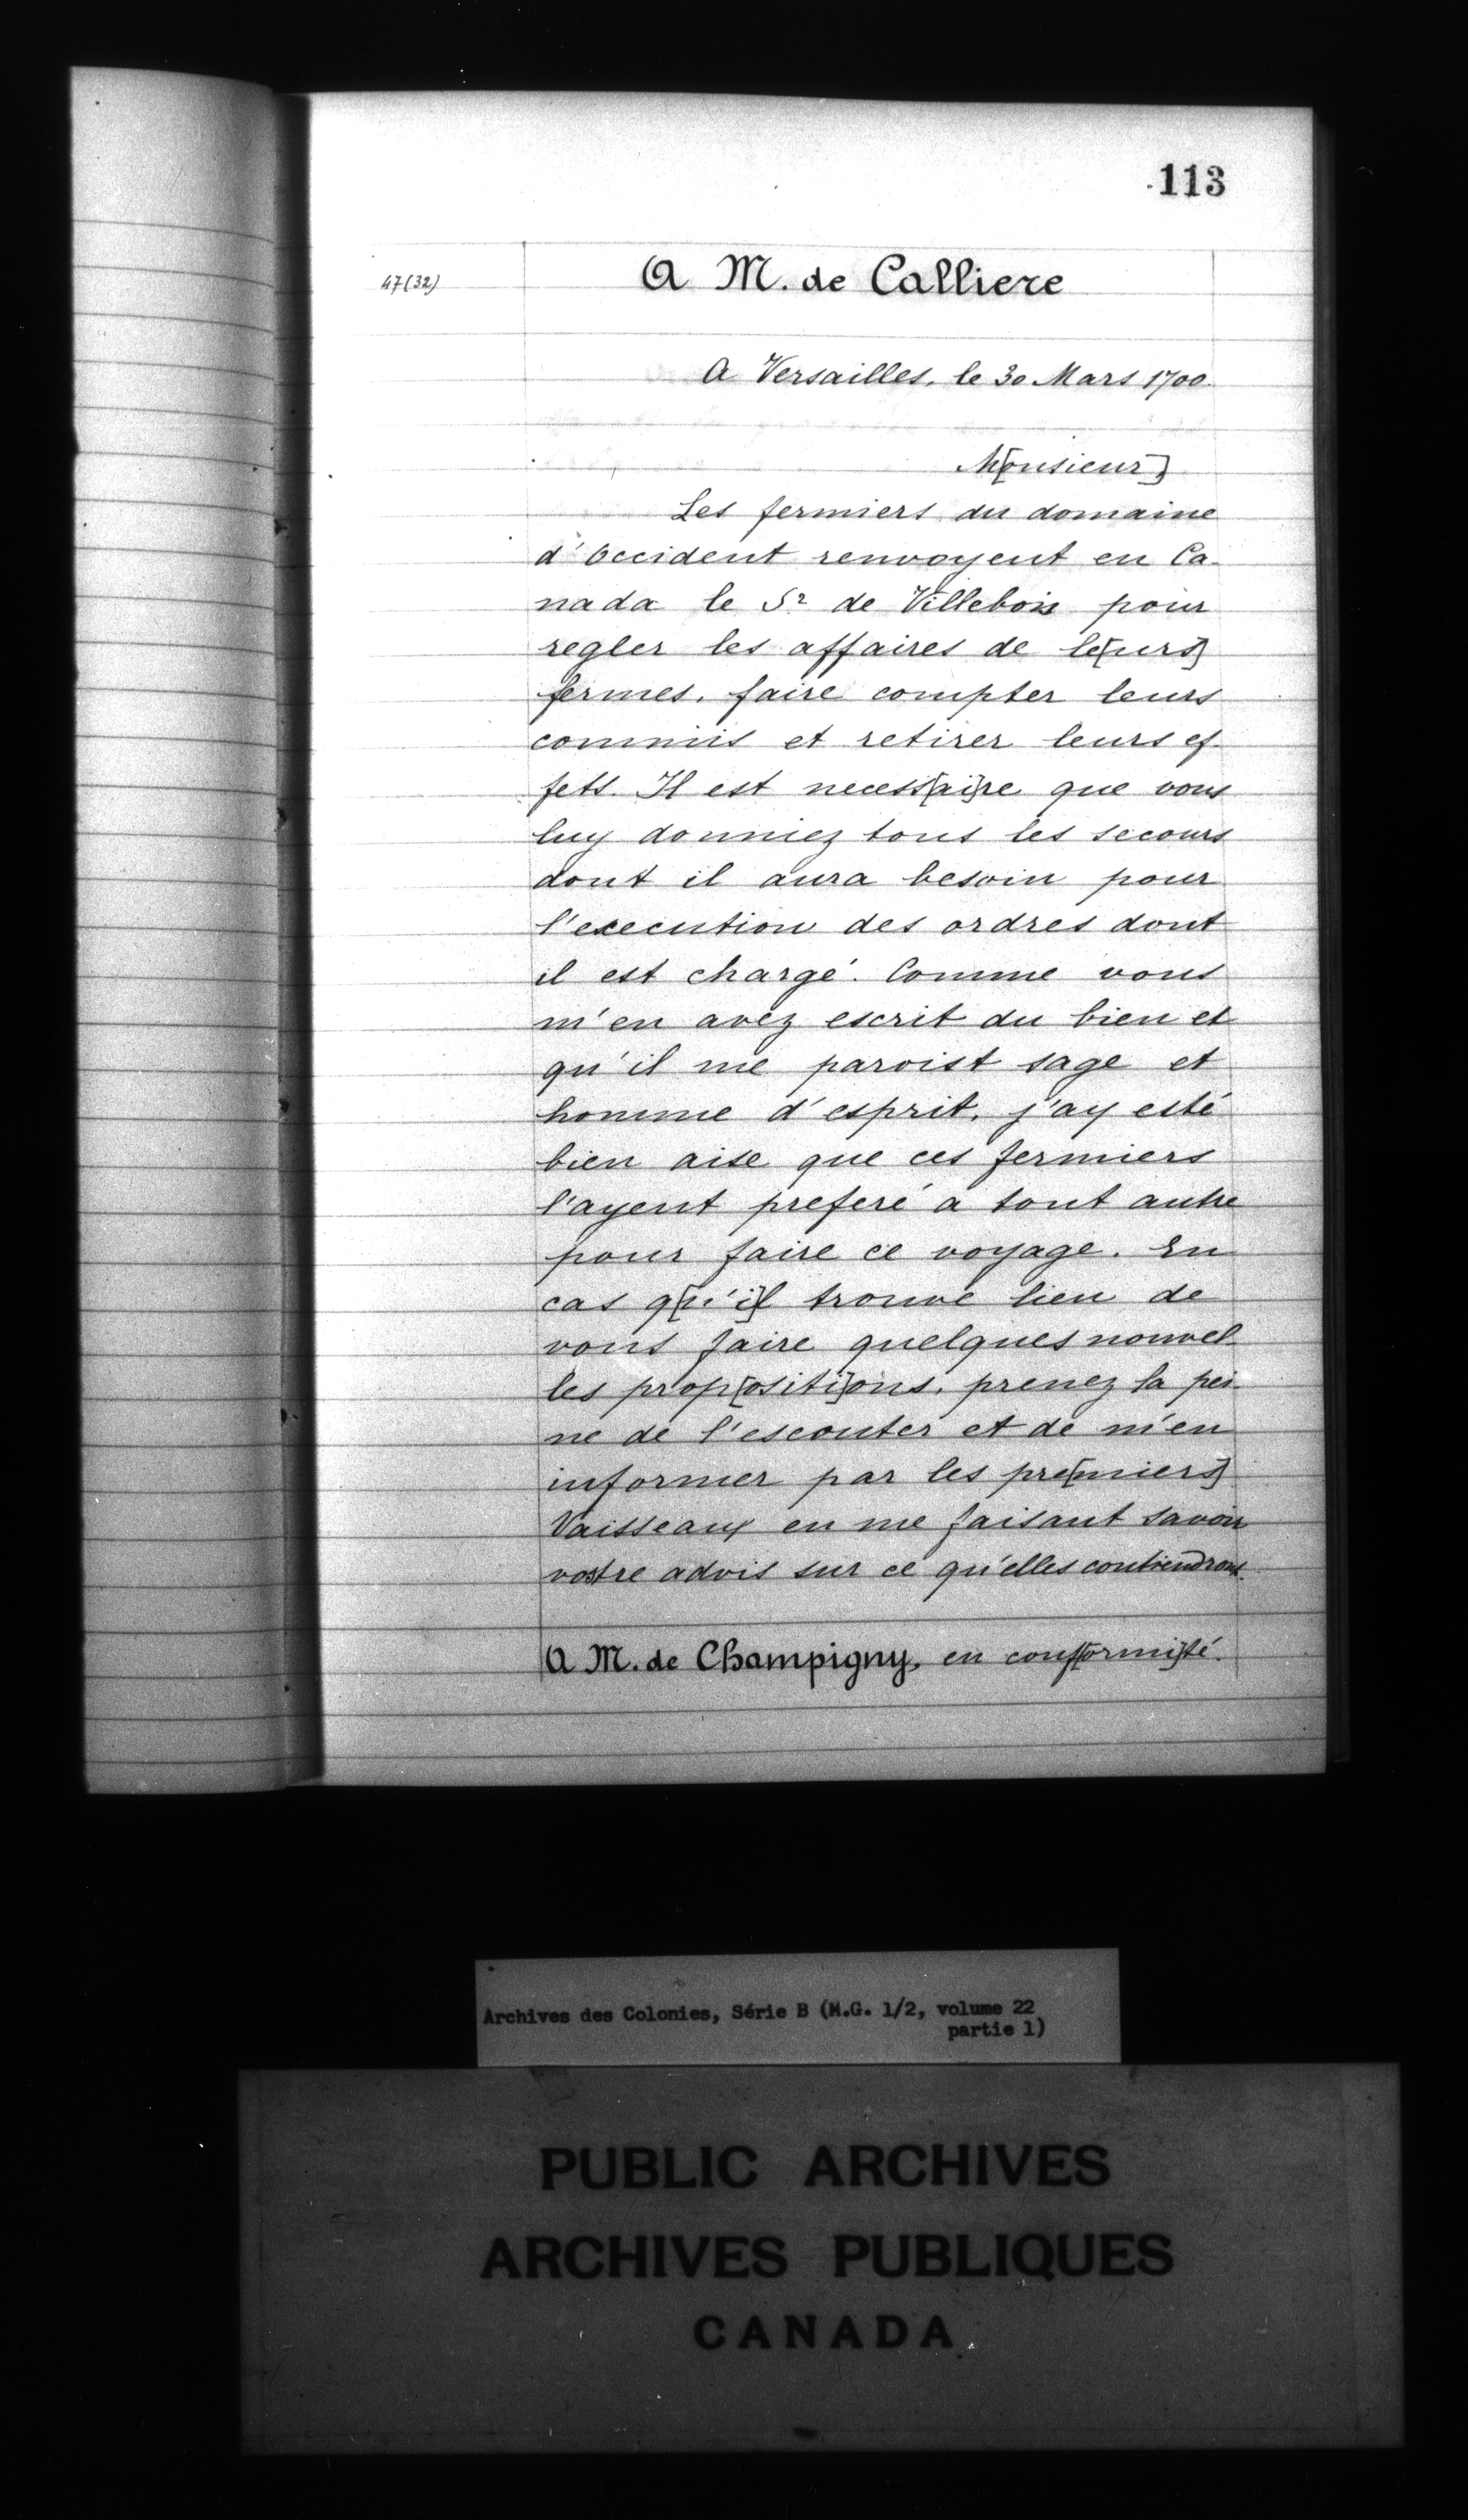 113
47(32)
A M. de Calliere
A Versailles, le 30 Mars 1700.
M[onsieur]
Les fermiers du domaine
d'Occident renvoyent en Ca-
nada le Sr de Villebois pour
regler les affaires de le[urs]
fermes, faire compter leurs
commis et retirer leurs ef-
fets. Il est necess[ai]re que vous
luy donniez tous les secours
dont il aura besoin pour
l'execution des ordres dont
il est chargé. Comme vous
m'en avez escrit du bien et
qu'il me paroist sage et
homme d'esprit, j'ay esté
bien aise que ces fermiers
l'ayent preferé a tout autre
pour faire ce voyage. En
cas q[u'i]l trouve lieu de
vous faire quelques nouvel-
les prop[ositi]ons, prenez la pei-
ne de l'escouter et de m'en
informer par les pre[miers]
Vaisseaux en me faisant savoir
vostre advis sur ce qu'elles contiendront.
A M. de Champigny, en conf[ormi]té.
Archives des Colonies, Série B (M.G. 1/2, volume 22
partie 1)
PUBLIC ARCHIVES
ARCHIVES PUBLIQUES
CANADA